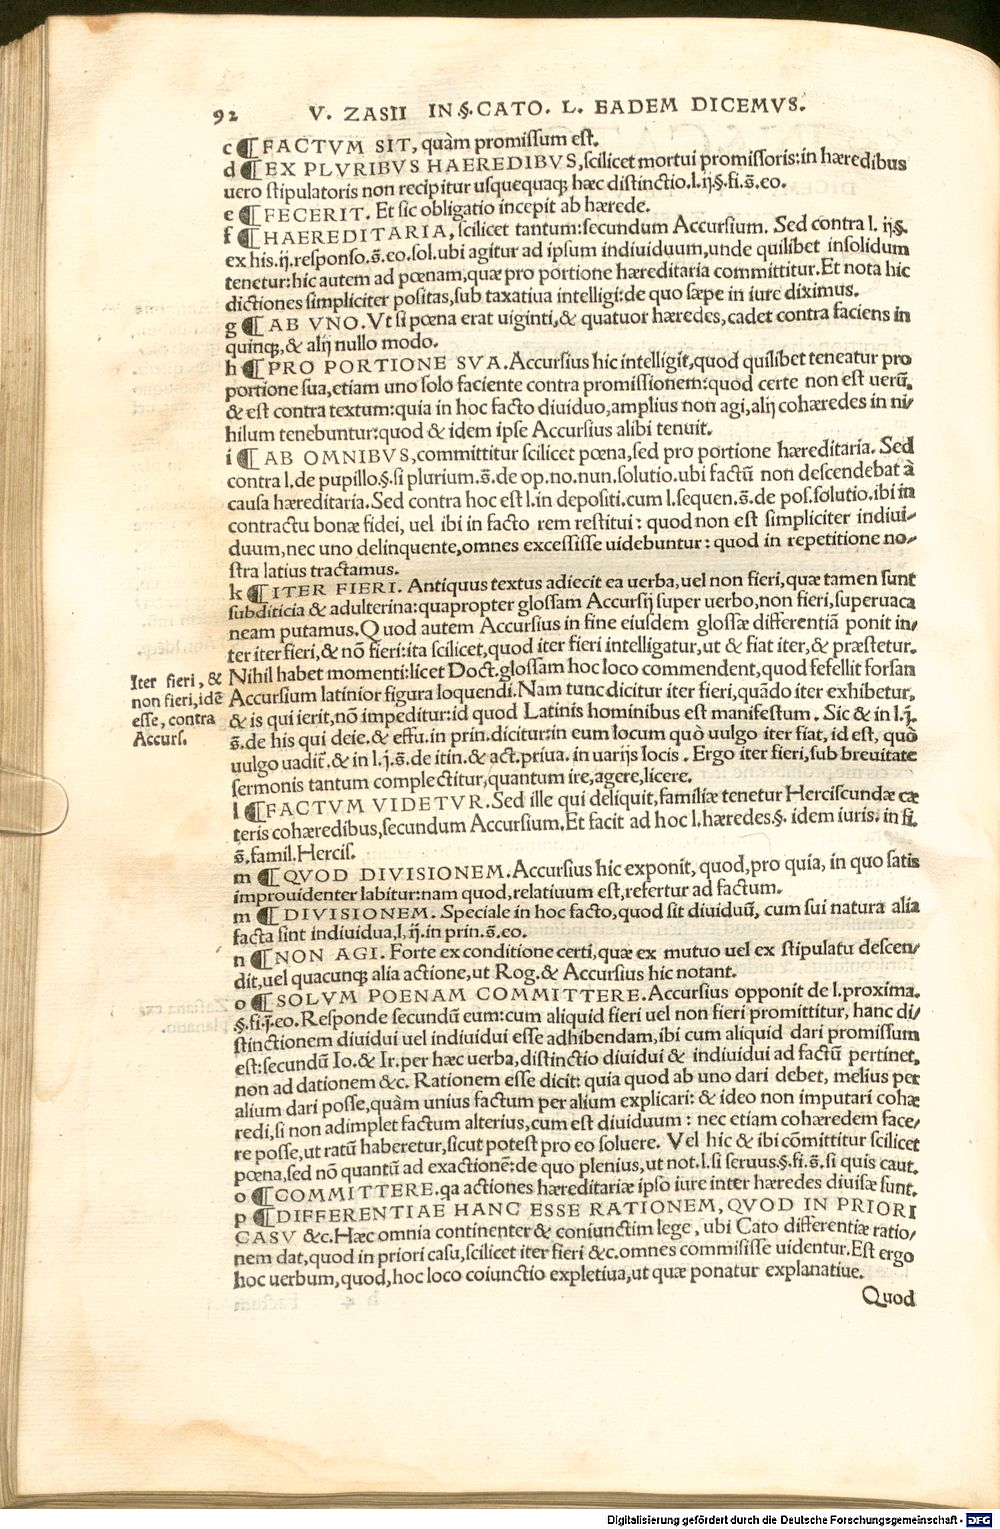 92 V. ZASII IN.§.CATO. L. EADEM DICEMVS.
c ¶ FACTVM SIT, quàm promissum est.
d ¶ EX PLVRIBVS HAEREDIBVS, scilicet mortui promissoris: in hæredibus
uero stipulatoris non recipitur usquequaq; hæc distinctio.l.ij.§.fi.s̃.eo.
e ¶ FECERIT. Et sic obligatio incepit ab hærede.
f ¶ HAEREDITARIA, scilicet tantum: secundum Accursium. Sed contra l. ij.§.
ex his.ij.responso.s̃.eo.sol.ubi agitur ad ipsum indiuiduum, unde quilibet insolidum
tenetur: hic autem ad pœnam, quæ pro portione hæreditaria committitur. Et nota hic
dictiones simpliciter positas, sub taxatiua intelligi: de quo sæpe in iure diximus.
g ¶ AB VNO. Vt si pœna erat uiginti, & quatuor hæredes, cadet contra faciens in
quinq;, & alij nullo modo.
h ¶ PRO PORTIONE SVA. Accursius hic intelligit, quod quilibet teneatur pro
portione sua, etiam uno solo faciente contra promissionem: quod certe non est uerũ.
& est contra textum: quia in hoc facto diuiduo, amplius non agi, alij cohæredes in ni/
hilum tenebuntur: quod & idem ipse Accursius alibi tenuit.
i ¶ AB OMNIBVS, committitur scilicet pœna, sed pro portione hæreditaria. Sed
contra l. de pupillo.§.si plurium.s̃.de op.no.nun.solutio.ubi factũ non descendebat à
causa hæreditaria. Sed contra hoc est l.in depositi.cum l.sequen.s̃.de pos.solutio.ibi in
contractu bonæ fidei, uel ibi in facto rem restitui: quod non est simpliciter indiui-
duum, nec uno delinquente, omnes excessisse uidebuntur: quod in repetitione no-
stra latius tractamus.
k ¶ ITER FIERI. Antiquus textus adiecit ea uerba, uel non fieri, quæ tamen sunt
subditicia & adulterina: quapropter glossam Accursij super uerbo, non fieri, superuaca
neam putamus. Quod autem Accursius in fine eiusdem glossæ differentiã ponit in/
ter iter fieri, & nõ fieri: ita scilicet, quod iter fieri intelligatur, ut & fiat iter, & præstetur.
Nihil habet momenti: licet Doct. glossam hoc loco commendent, quod fefellit forsan
Accursium latinior figura loquendi. Nam tunc dicitur iter fieri, quãdo iter exhibetur,
& is qui ierit, nõ impeditur: id quod Latinis hominibus est manifestum. Sic & in l.j.
s̃.de his qui deie.& effu.in prin.dicitur: in eum locum quò uulgo iter fiat, id est, quò
uulgo uadit̃.& in l.j.s̃.de itin.& act.priua.in uarijs locis. Ergo iter fieri, sub breuitate
sermonis tantum complectitur, quantum ire, agere, licere.
Iter fieri, &
non fieri, idẽ
esse, contra
Accurs.
l ¶ FACTVM VIDETVR. Sed ille qui deliquit, familiæ tenetur Herciscundæ cæ
teris cohæredibus, secundum Accursium. Et facit ad hoc l.hæredes.§. idem iuris. in fi.
s̃.famil.Hercis.
m ¶ QVOD DIVISIONEM. Accursius hic exponit, quod, pro quia, in quo satis
improuidenter labitur: nam quod, relatiuum est, refertur ad factum.
m ¶ DIVISIONEM. Speciale in hoc facto, quod sit diuiduũ, cum sui natura alia
facta sint indiuidua, l, ij.in prin.s̃.eo.
n ¶ NON AGI. Forte ex conditione certi, quæ ex mutuo uel ex stipulatu descen/
dit, uel quacunq; alia actione, ut Rog.& Accursius hic notant.
o ¶ SOLVM POENAM COMMITTERE. Accursius opponit de l.proxima.
§.fi.j̃.eo. Responde secundũ eum: cum aliquid fieri uel non fieri promittitur, hanc di/
stinctionem diuidui uel indiuidui esse adhibendam, ibi cum aliquid dari promissum
est: secundũ Io.& Ir.per hæc uerba, distinctio diuidui & indiuidui ad factũ pertinet,
non ad dationem &c. Rationem esse dicit: quia quod ab uno dari debet, melius per
alium dari posse, quàm unius factum per alium explicari: & ideo non imputari cohæ
redi, si non adimplet factum alterius, cum est diuiduum: nec etiam cohæredem face/
re posse, ut ratũ haberetur, sicut potest pro eo soluere. Vel hic & ibi cõmittitur scilicet
pœna, sed nõ quantũ ad exactionẽ: de quo plenius, ut not.l.si seruus.§.fi.s̃.si quis caut.
o ¶ COMMITTERE. qa actiones hæreditariæ ipso iure inter hæredes diuisæ sunt.
p ¶ DIFFERENTIAE HANC ESSE RATIONEM, QVOD IN PRIORI
CASV &c. Hæc omnia continenter & coniunctim lege, ubi Cato differentiæ ratio/
nem dat, quod in priori casu, scilicet iter fieri &c. omnes commisisse uidentur. Est ergo
hoc uerbum, quod, hoc loco coiunctio expletiua, ut quæ ponatur explanatiue.
Quod
Digitalisierung gefördert durch die Deutsche Forschungsgemeinschaft - DFG